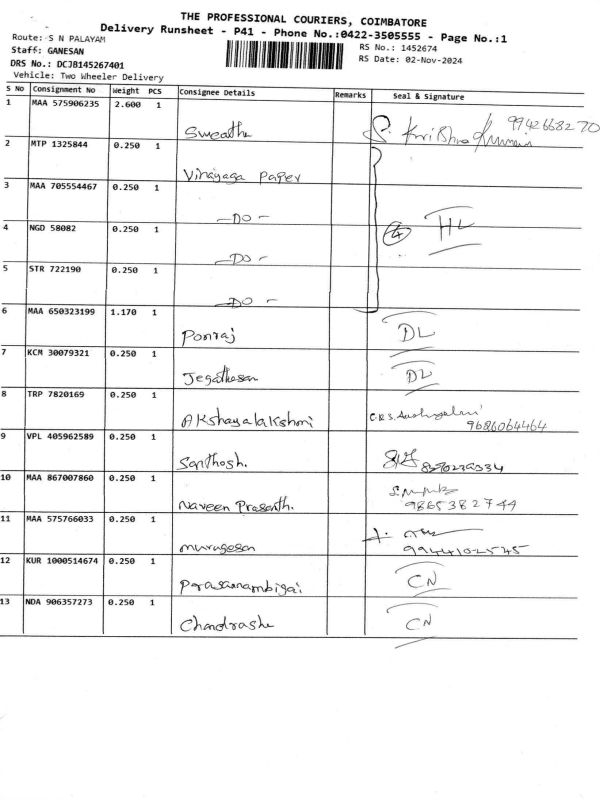 THE PROFESSIONAL COURIERS, COIMBATORE
Delivery Runsheet - P41 - Phone No.:0422-3505555 - Page No.:1
Route: S N PALAYAM
RS No.: 1452674
Staff: GANESAN
RS Date: 02-Nov-2024
DRS No.: DCJB145267401
Vehicle: Two Wheeler Delivery
S No Consignment No Weight PCS Consignee Details Remarks Seal & Signature
1 MAA 575906235 2.600 1 Sweatha S. Krishna Kumar 9942668270
2 MTP 1325844 0.250 1 Vinayaga Paper
3 MAA 705554467 0.250 1 -DO-
4 NGD 58082 0.250 1 -DO- 4 HL
5 STR 722190 0.250 1 -DO-
6 MAA 650323199 1.170 1 Ponraj DL
7 KCM 30079321 0.250 1 Jegathesan DL
8 TRP 7820169 0.250 1 Akshayalakshmi 9686064464
9 VPL 405962589 0.250 1 Santhosh.
10 MAA 867007860 0.250 1 Naveen Prasanth. 9865382744
11 MAA 575766033 0.250 1 murugesan 9944102575
12 KUR 1000514674 0.250 1 CN
13 NDA 906357273 0.250 1 CN